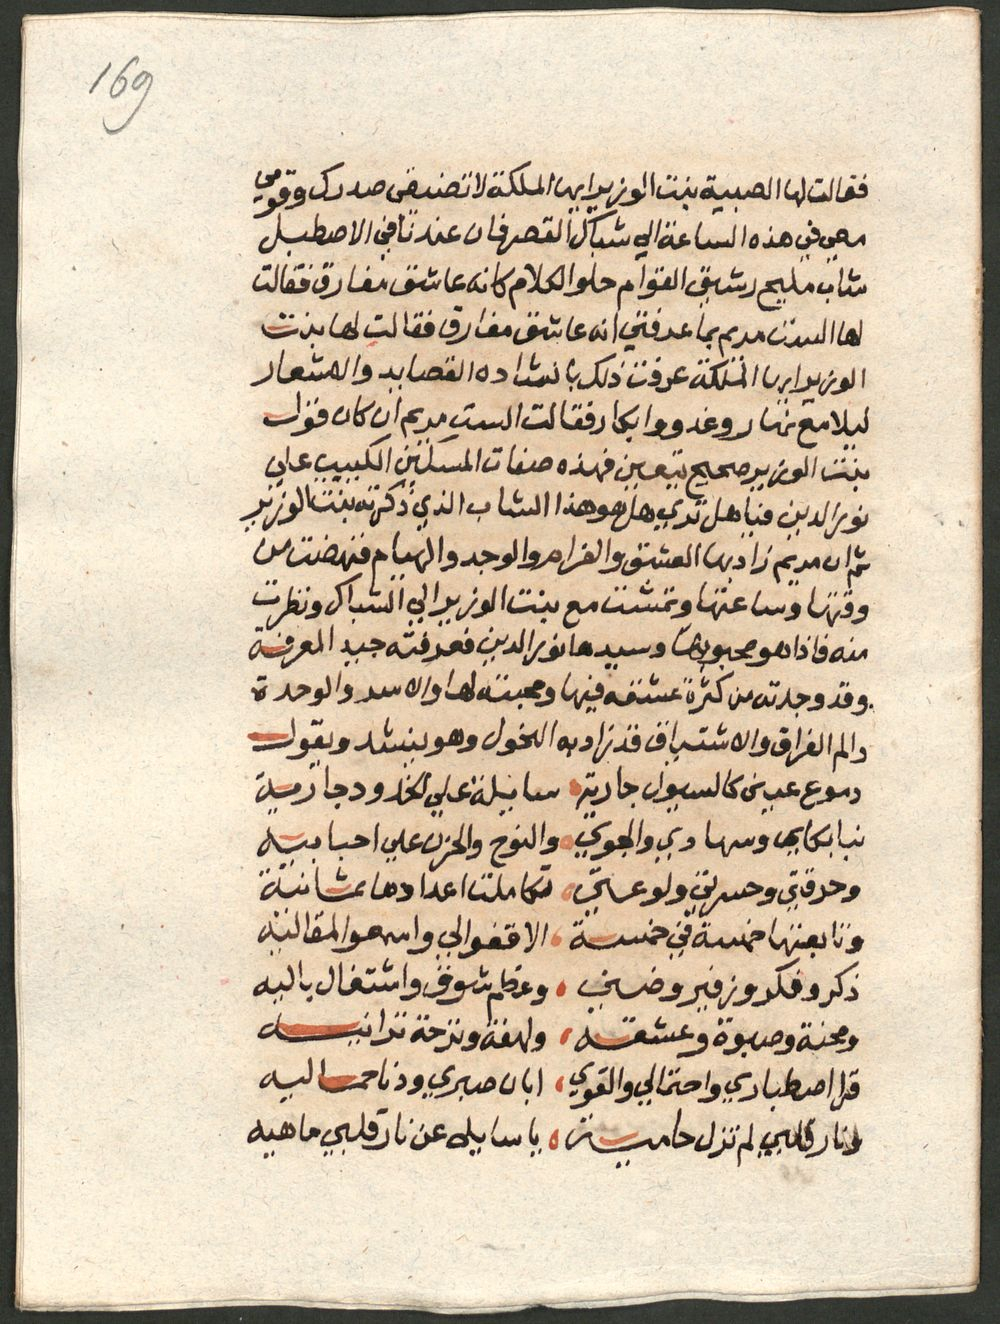 169
فقالت لها الصبية بنت الوزير ايها الملكة لا تضيقي صدرك وقومي
معي في هذه الساعة الي شباك القصر فان عندنا في الاصطبل
شاب مليح رشيق القوام حلو الكلام كانه عاشق مفارق فقالت
لها الست مريم بما عرفتي انه عاشق مفارق فقالت لها بنت
الوزير ايها الملكة عرفت ذلك بانشاده القصايد والاشعار
ليلا مع نهار وغدو وابكار فقالت الست مريم ان كان قول
بنت الوزير صحيح بيقين فهذه صفات المسكين الكييب علي
نور الدين فيا هل تري هل هو هذا الشاب الذي ذكرته بنت الوزير
ثم ان مريم زاد بها العشق والغرام والوجد والهيام فنهضت من
وقتها وساعتها وتمشت مع بنت الوزير الي الشباك ونظرت
منه فاذا هو محبوبها وسيدها نور الدين فعرفته جيد المعرفة
وقد وجدته من كثرة عشقه فيها ومحبته لها والاسر والوحدة
والم الفراق والاشتياق قد زاد به النحول وهو ينشد ويقول
دموع عيني كالسيول جارية سايلة علي الخدود جارمية
نيا بكايي وسهادي والجوي والنوح والحزن علي احبابيه
وحرقتي وحسرتي ولوعتي تكاملت اعدادها ثمانية
وتابعتها خمسة في خمسة الا قفوا لي واسمعوا المقاليه
ذكر وفكر وزفير وضني وعظم شوق واشتغال باليه
ومحنة وصبوة وعشقه ولهفة ونزحة ترانيه
قل اصطباري واحتمالي والقوي ابان صبري ودنا حماليه
ونار قلبي لم تزل حامية يا سايلي عن نار قلبي ما هيه